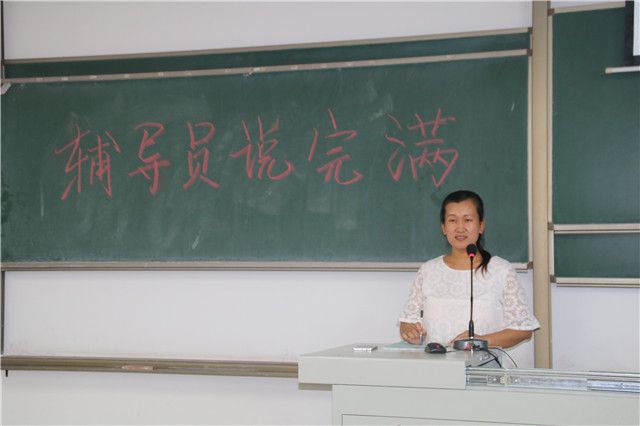 辅导员说完满